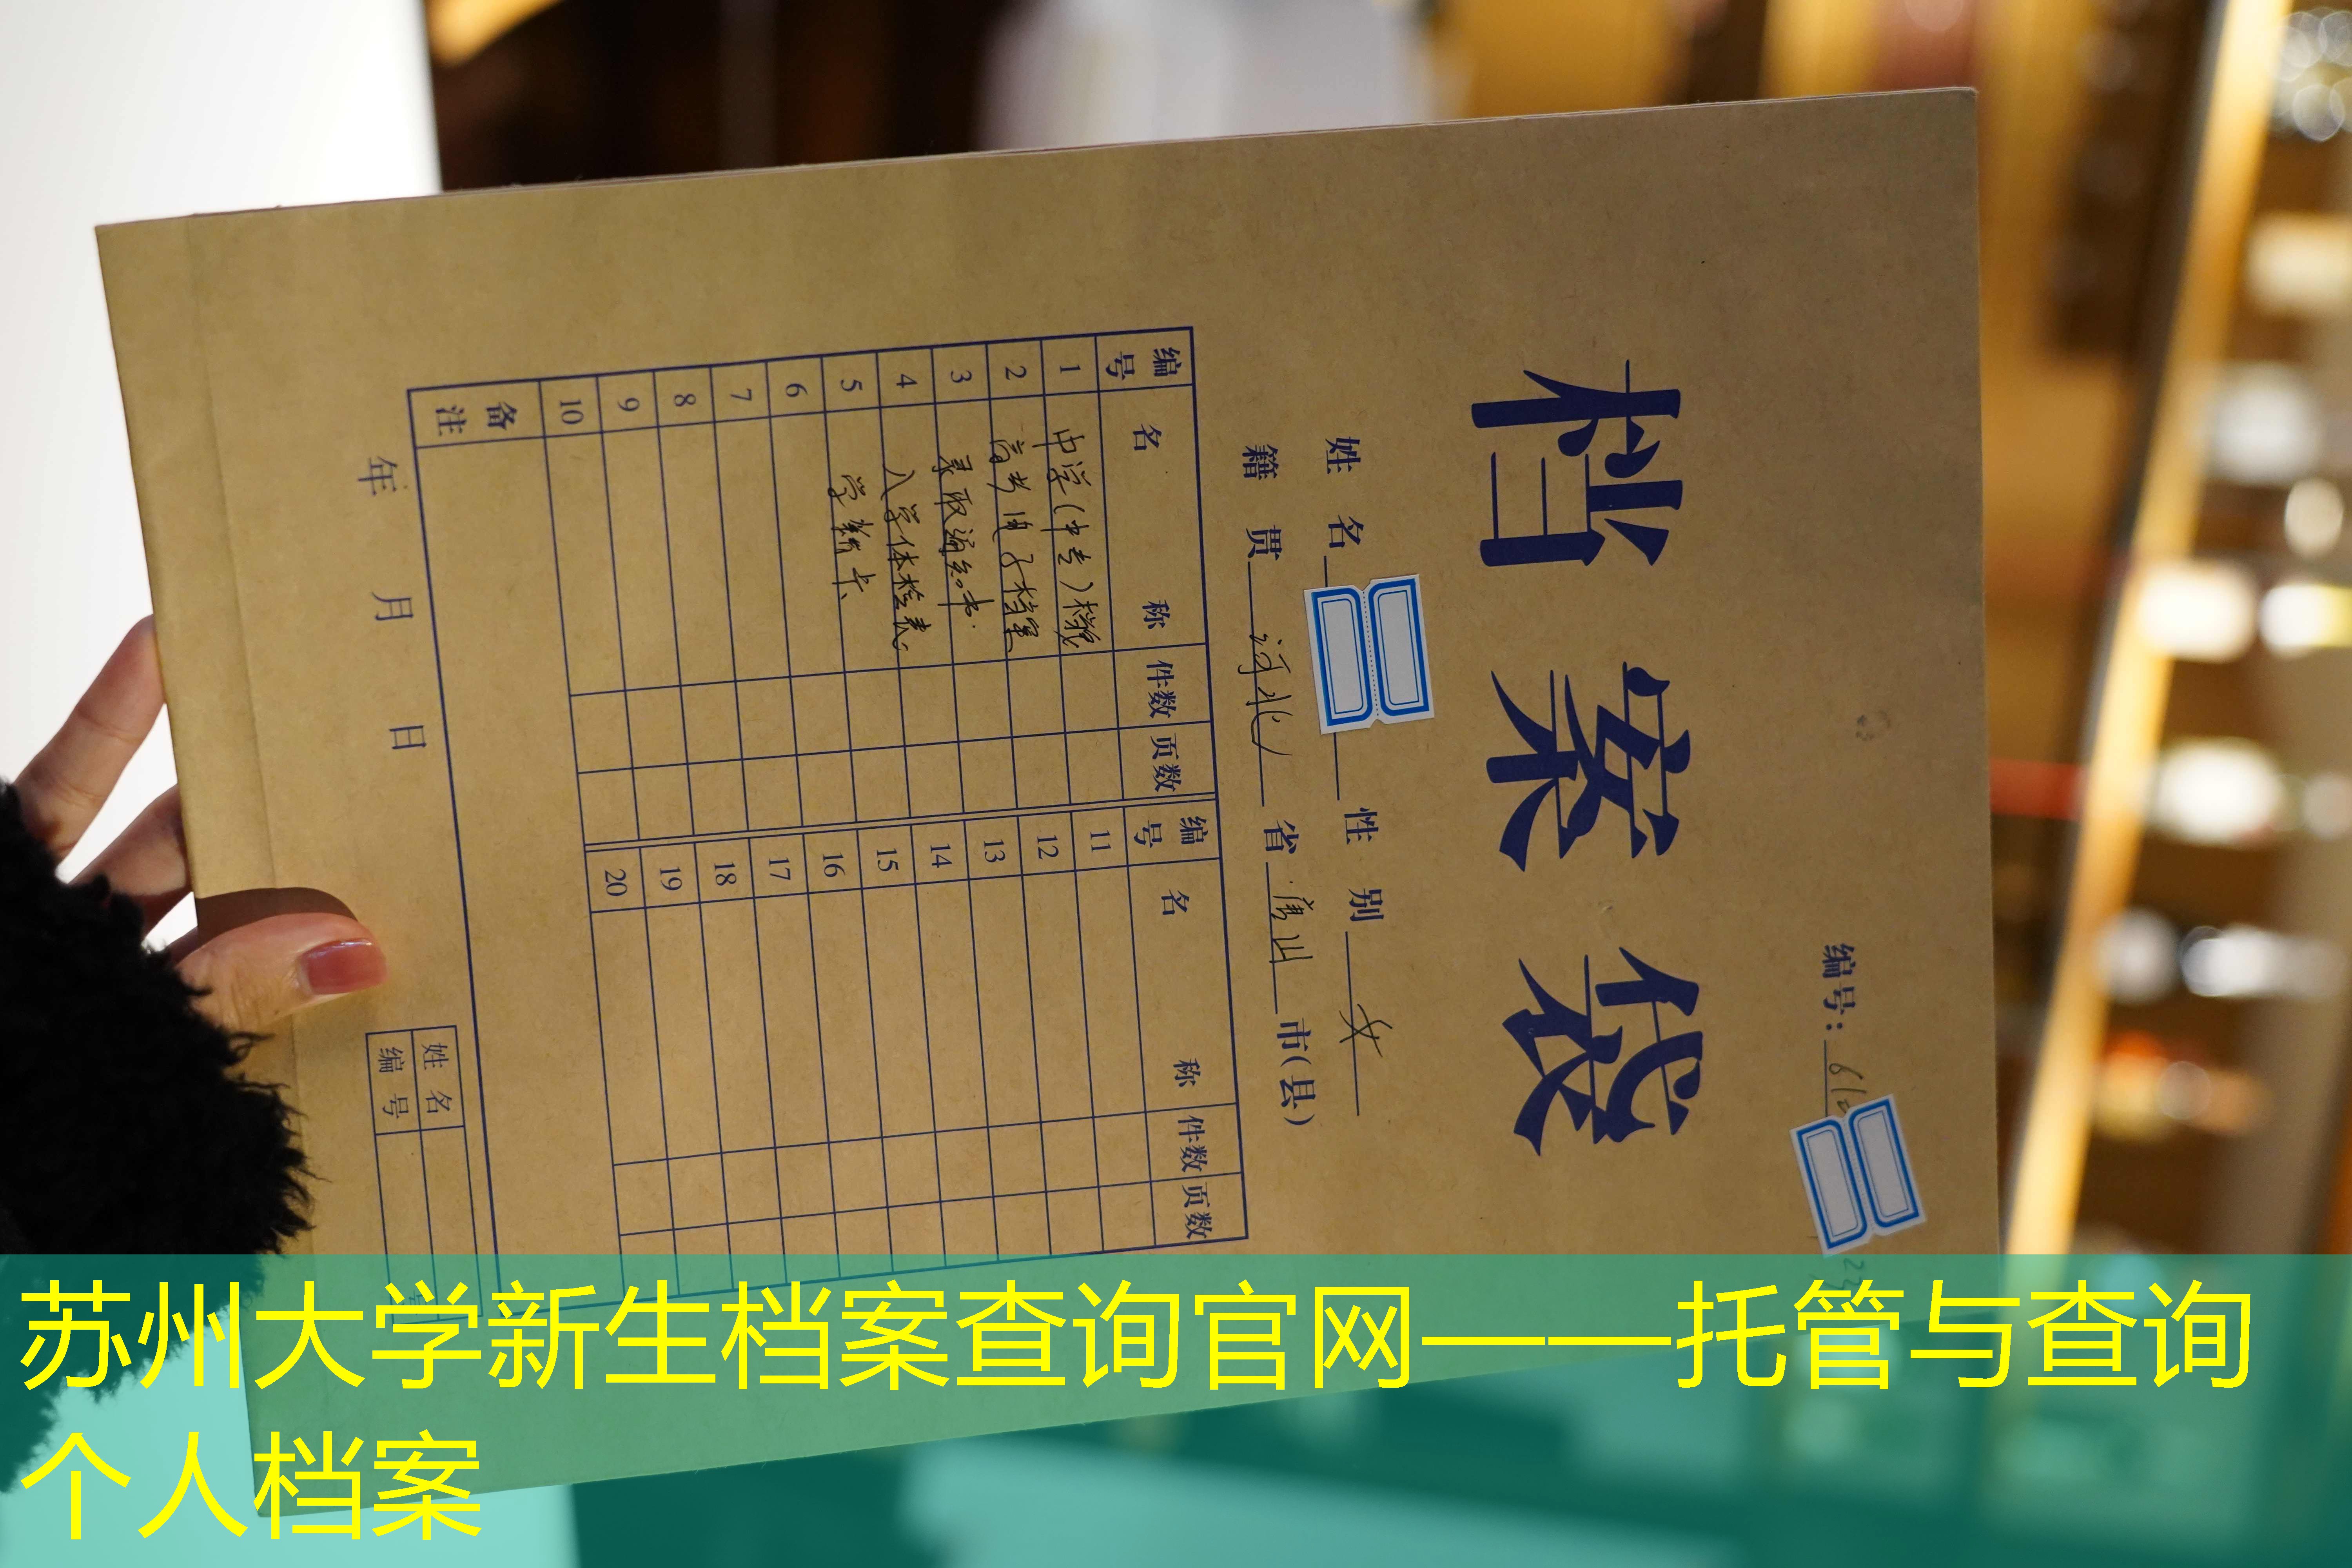 编号：
档案袋
姓名 性别 女
籍贯 河北 省 唐山 市(县)
编号 名称 件数 页数 编号 名称 件数 页数
1 中学(中专)档案 11
2 高考电子档案 12
3 录取通知书 13
4 入学体检表 14
5 学籍卡 15
6 16
7 17
8 18
9 19
10 20
备注
年 月 日
姓名
编号
苏州大学新生档案查询官网——托管与查询
个人档案